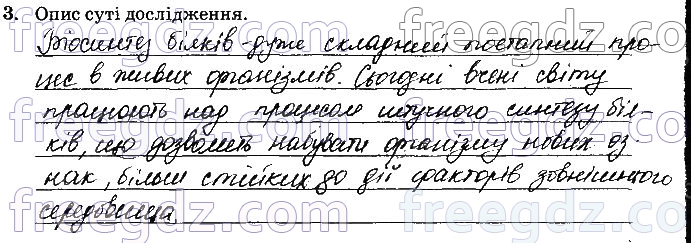 3. Опис суті дослідження.
Біосинтез білків - дуже складний поетапний про-
цес в живих організмів. Сьогодні вчені світу
працюють над процесом штучного синтезу біл-
ків, що дозволить набувати організму нових оз-
нак, більш стійких до дії факторів зовнішнього
середовища